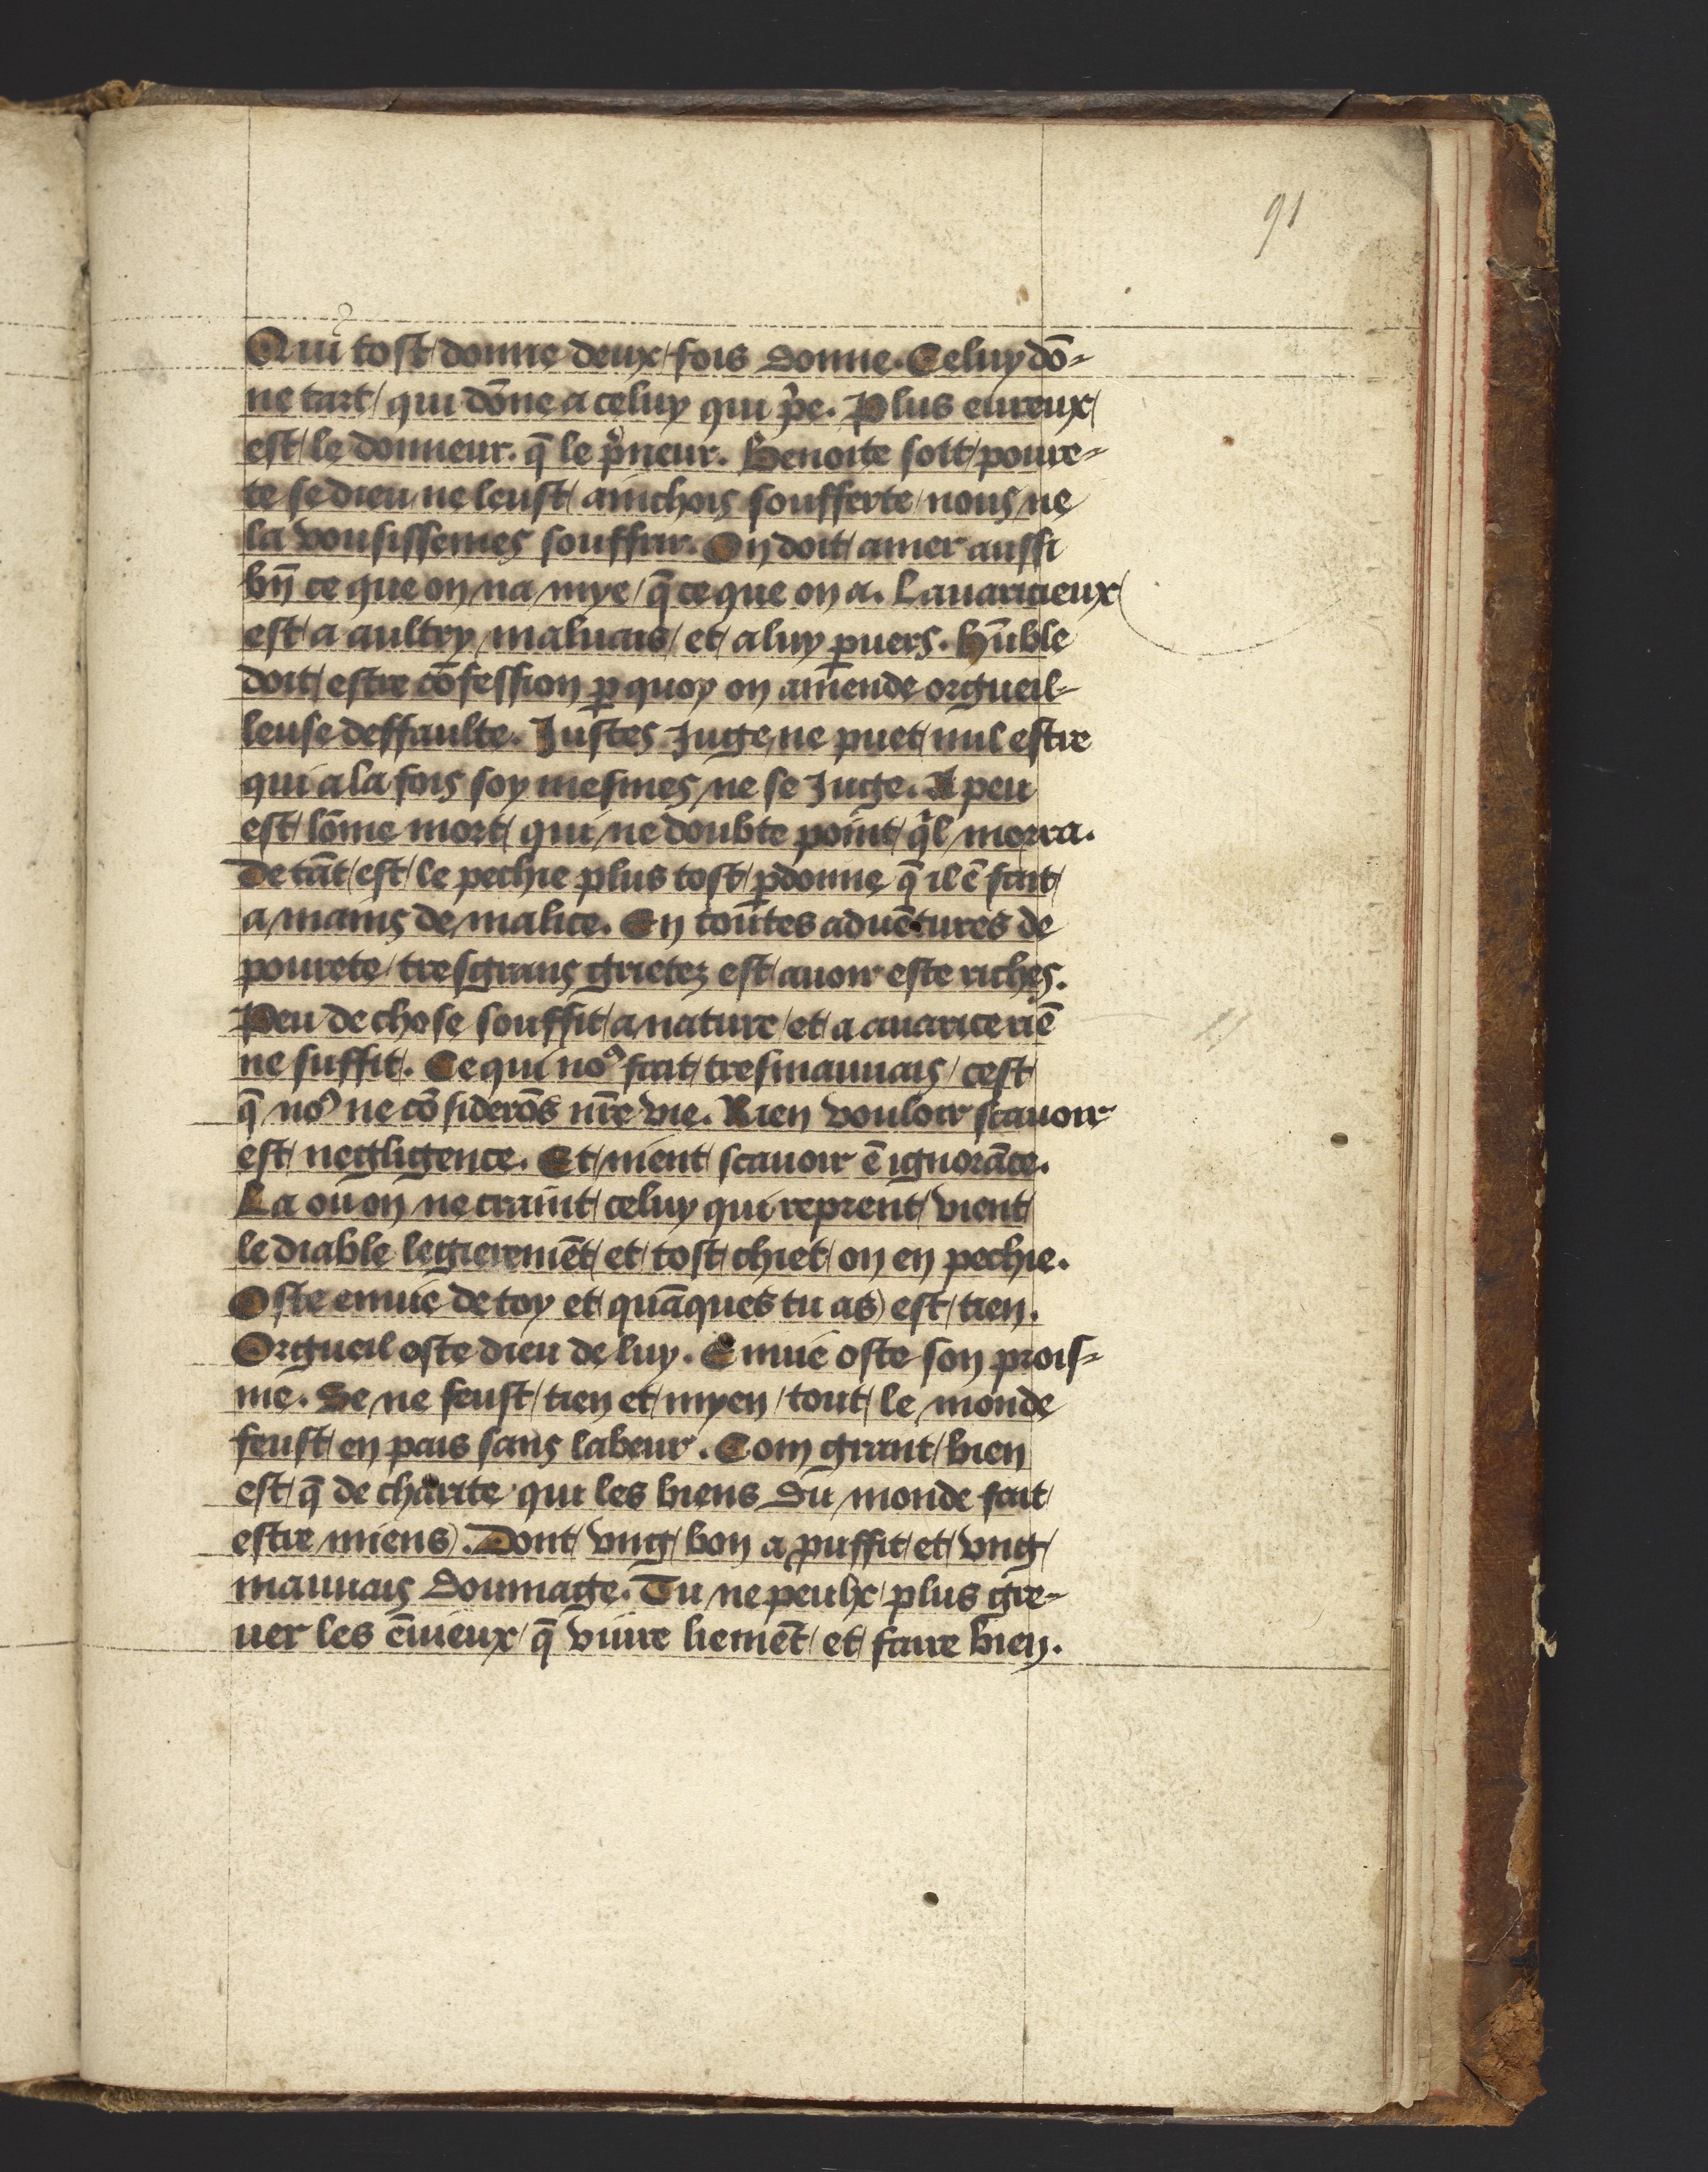 91
Qui tost donne deux fois donne. Celuy dō-
ne tart qui dōne a celuy qui p̃e. Plus eureux
est le donneur. q̄ le p̃neur. Benoite soit poure-
te se dieu ne leust ainchois soufferte nous ne
la vousissemes souffrir. On doit amer aussi
bn̄ ce que on na mye q̄ ce que on a. Lauaricieux
est a aultry maluais et a luy ꝑuers. Hūble
doit estre cōfession ꝑ quoy on amende orgueil-
leuse deffaulte. Justes Juge ne puet nul estre
qui a la fois soy mesmes ne se Juge. A peu
est lōme mort qui ne doubte point qͥl morra.
De tāt est le pechie plus tost ꝑdonne q̄ il ē fait
a mains de malice. En toutes aduētures de
pourete tresgrans grietez est auoir este riches.
Peu de chose souffit a nature et a auarice riē
ne suffit. Ce qui noꝰ fait tresmauuais cest
q̄ noꝰ ne cōsiderōs nr̄e vie. Rien vouloir scauoir
est negligence. Et nient scauoir ē ignorāce.
La ou on ne craint celuy qui reprent vient
le diable legieremēt et tost chiet on en pechie.
Oste enuie de toy et quāques tu as est tien.
Orgueil oste dieu de luy. Enuie oste son prois-
me. Se ne feust tien et myen tout le monde
feust en pais sans labeur. Com grant bien
est q̄ de charite qui les biens du monde fait
estre miens. Dont vng bon a puffit et vng
mauuais doumage. Tu ne peulx plus gre-
uer les ēuieux q̄ viure liemēt et faire bien.